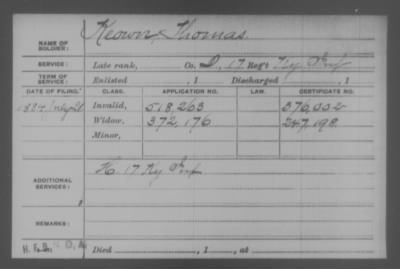 Keown, Thomas.
NAME OF SOLDIER:
SERVICE: Late rank, Co. D, 17 Reg't Ky Inf
TERM OF SERVICE: Enlisted , 1 Discharged , 1
DATE OF FILING. CLASS. APPLICATION NO. LAW. CERTIFICATE NO.
1884 Invalid, 518,263 376,002
Widow, 372,176 247,198
Minor,
ADDITIONAL SERVICES: H. 17 Ky Inf
REMARKS:
Died , 1 , at